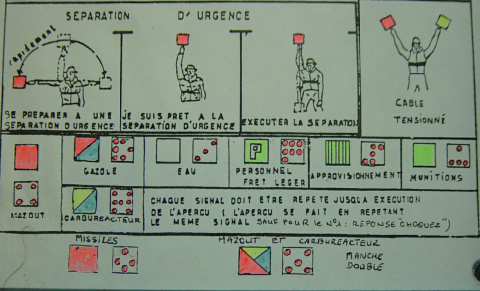 SEPARATION D' URGENCE
rapidement
SE PREPARER A UNE
SEPARATION D'URGENCE
JE SUIS PRET A LA
SEPARATION D'URGENCE
EXECUTER LA SEPARATION
CABLE
TENSIONNÉ
MAZOUT
GAZOLE
EAU
P
PERSONNEL
FRET LEGER
APPROVISIONNEMENT
MUNITIONS
CARBUREACTEUR
CHAQUE SIGNAL DOIT ÊTRE REPETE JUSQU'A EXECUTION
DE L'APERCU ( L'APERCU SE FAIT EN REPETANT
LE MEME SIGNAL SAUF POUR LE N°1 : REPONSE "CHOQUEZ")
MISSILES
MAZOUT ET CARBUREACTEUR
MANCHE
DOUBLE